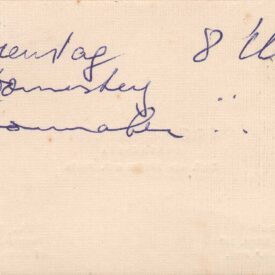 ienstag 8 Uh
onnerstag " "
onnabend " "